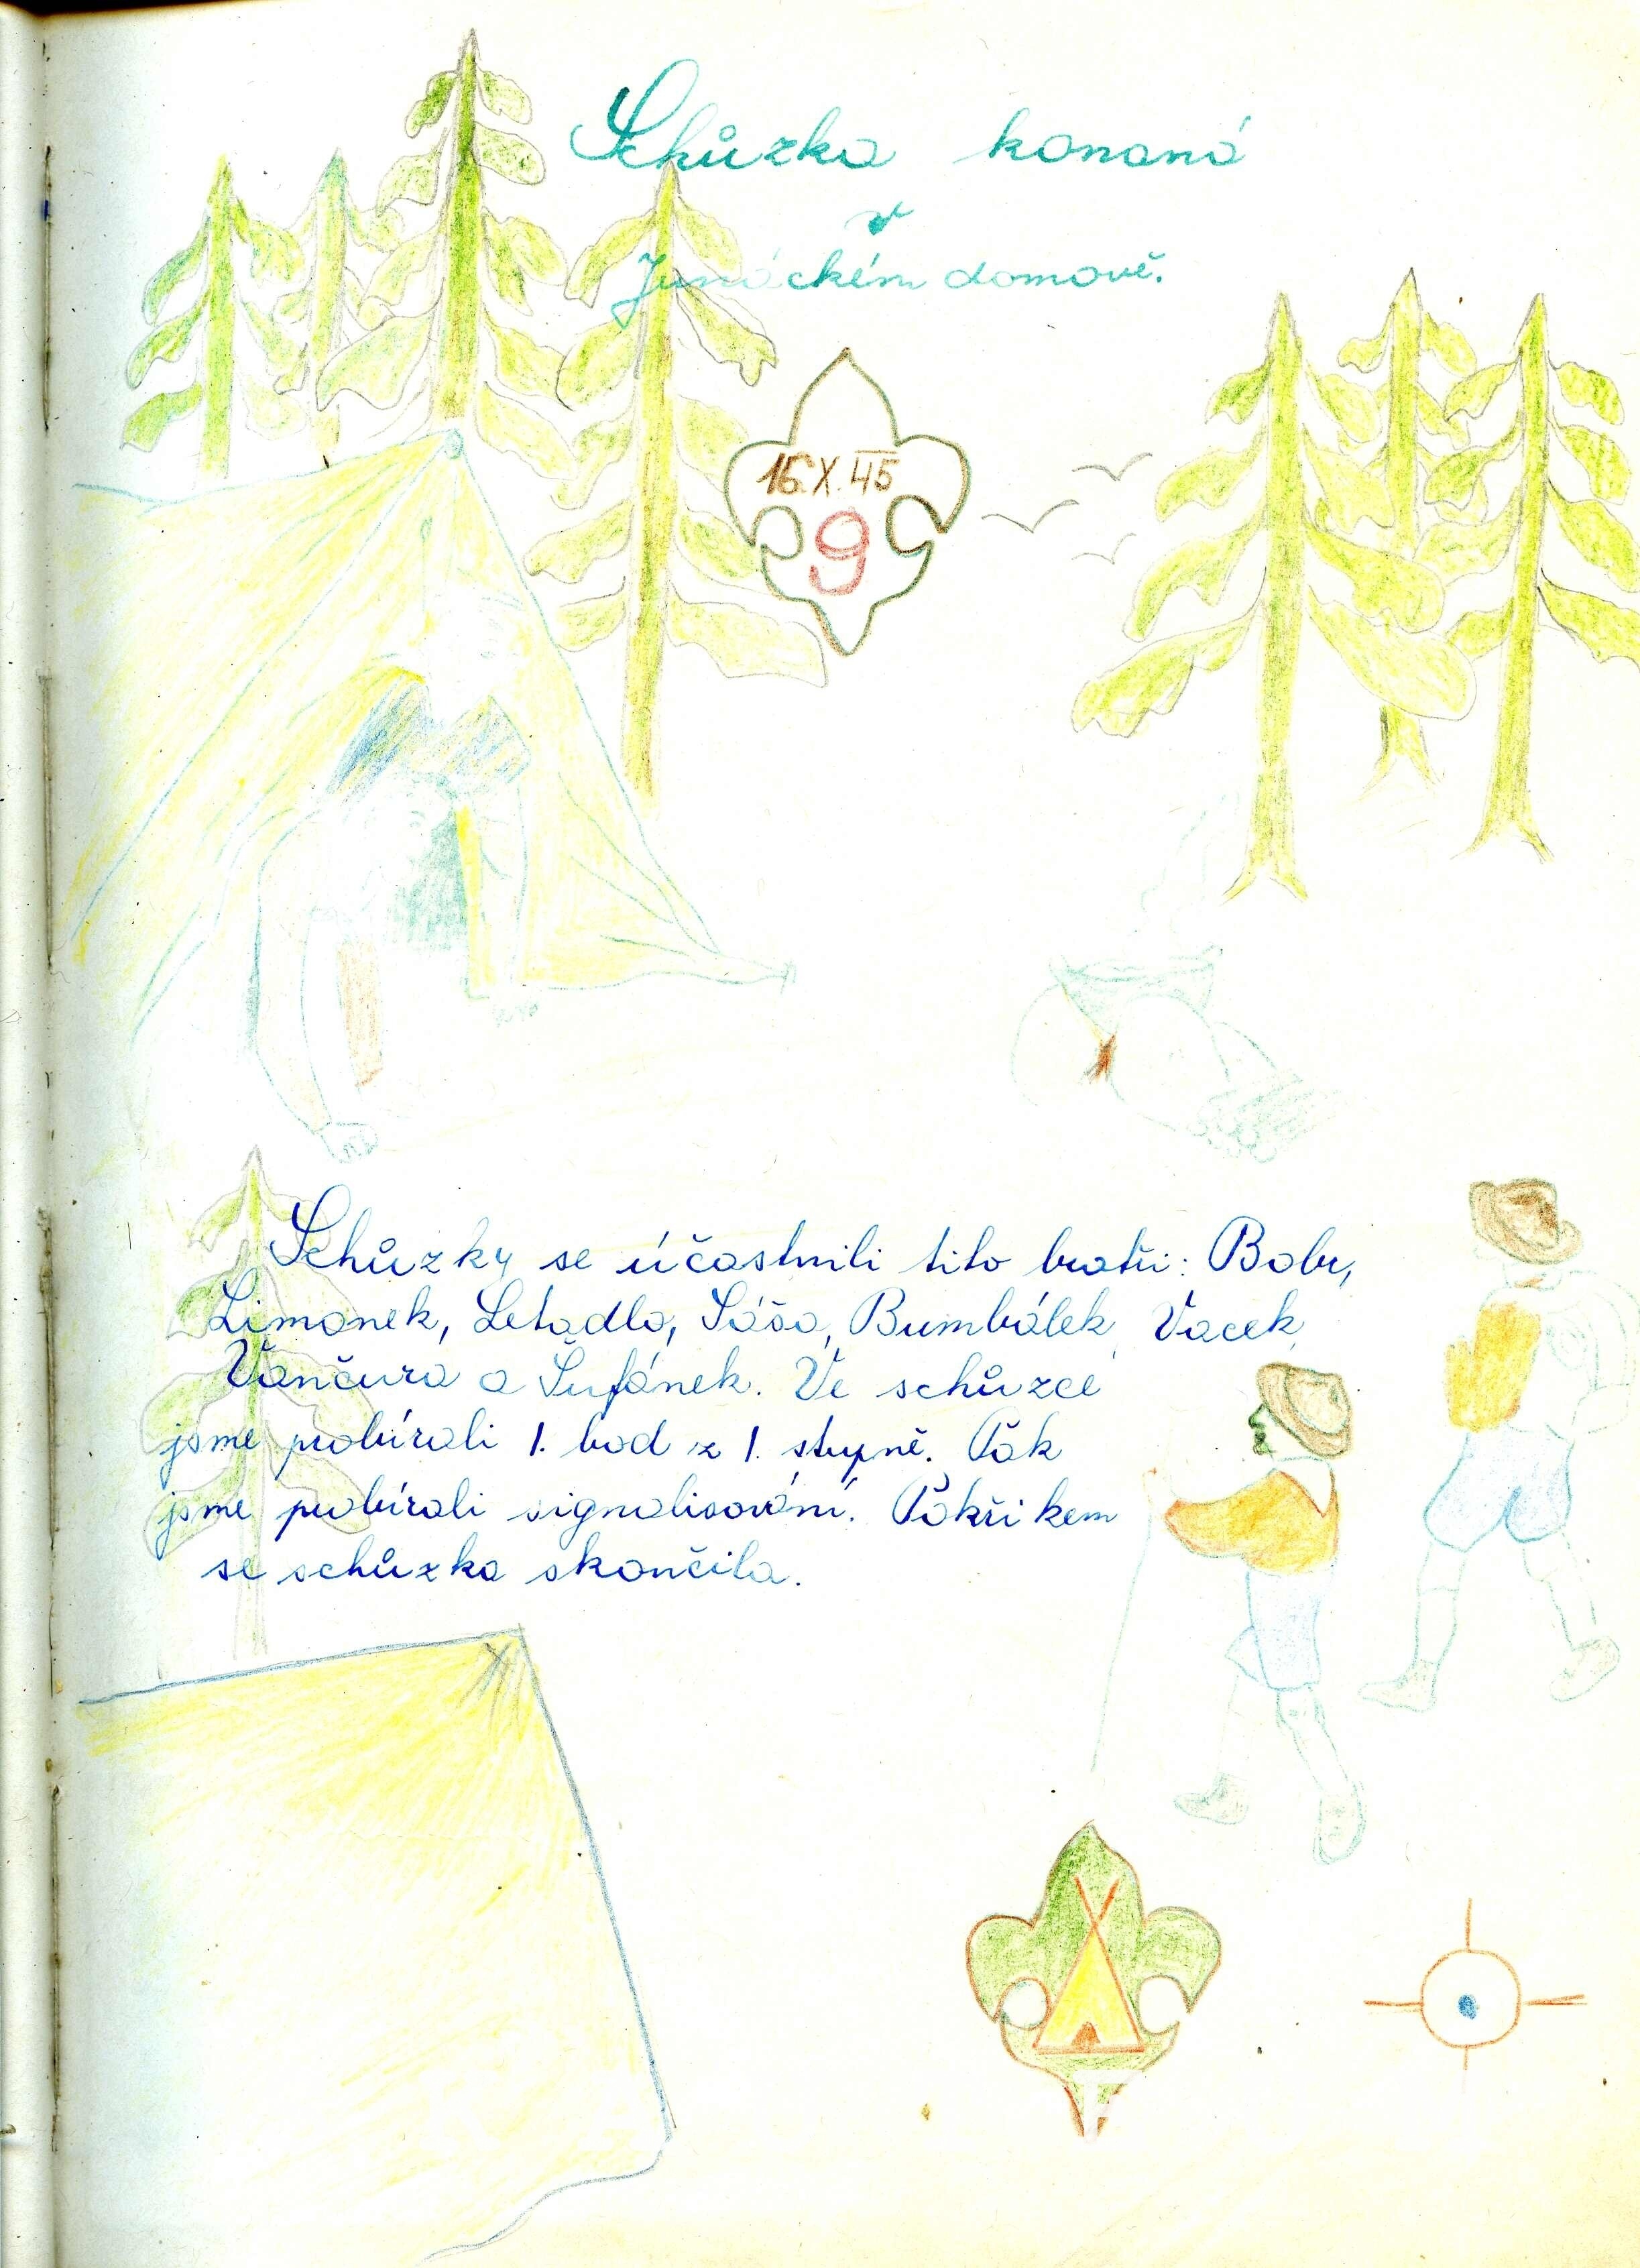 Schůzka konaná
v
Junáckém domově.
16.X.45
9
Schůzky se účastnili tito bratři: Bobr,
Limonek, Letadlo, Sáša, Bumbálek, Vacek,
Vančura a Šufánek. Ve schůzce
jsme probírali 1. bod z 1. stupně. Pak
jsme probírali signalisování. Pokřikem
se schůzka skončila.